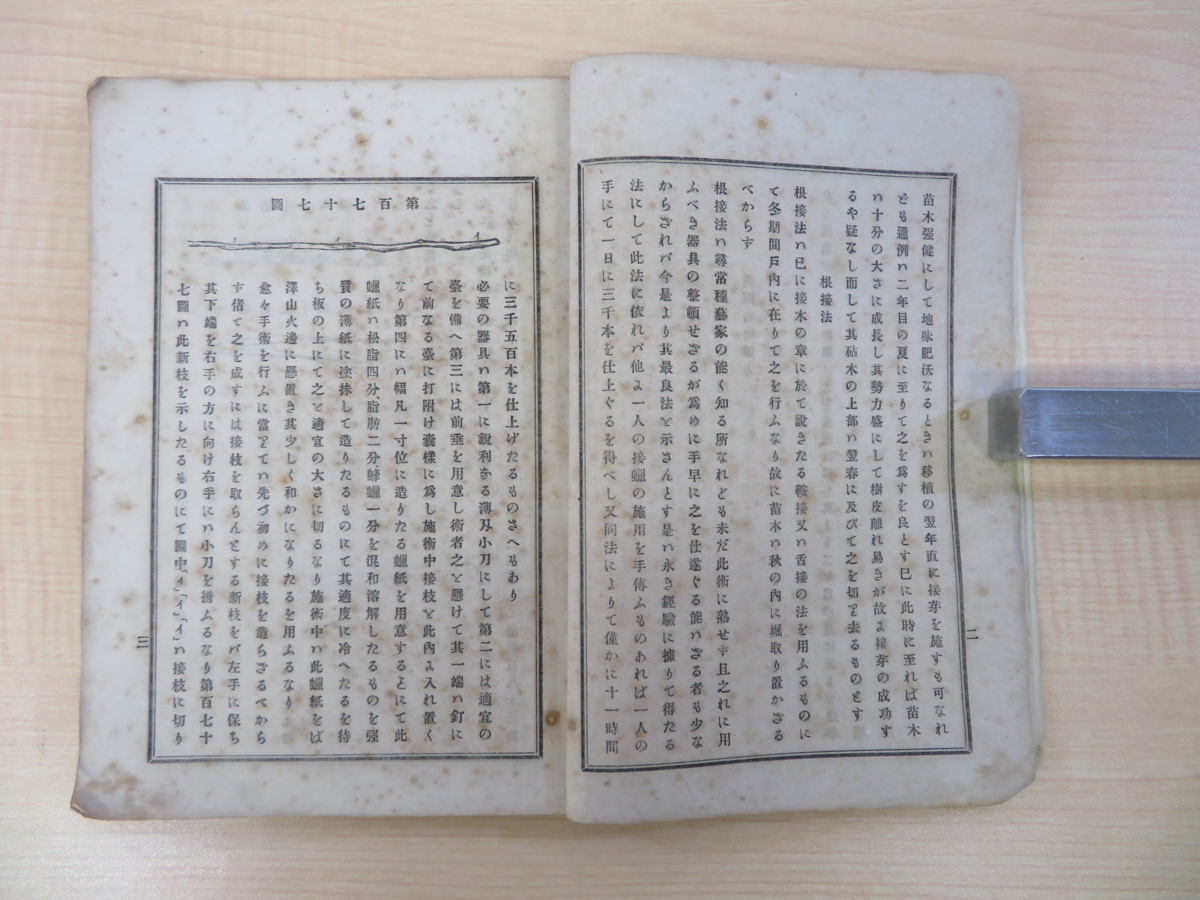 苗木强健にして地味肥沃なるときハ移植の翌年直に接芽を施すも可なれ
ども通例ハ二年目の夏に至りて之を爲すを良とす已に此時に至れば苗木
ハ十分の大さに成長し其勢力盛にして樹皮離れ易きが故ょ接芽の成功す
るや疑なし而して其砧木の上部ハ翌春に及びて之を切り去るものとす
根接法
根接法ハ已に接木の章に於て説きたる鞍接又ハ舌接の法を用ふるものに
て冬期間戸內に在りて之を行ふなり故に苗木ハ秋の內に堀取り置かざる
べからず
根接法ハ尋常種藝家の能く知る所なれども未だ此術に熟せず且之れに用
ふべき器具の整頓せざるが爲めに手早に之を仕遂ぐる能ハざる者も少な
からざれバ今是より其最良法を示さんとす是ハ永き經驗に據りて得たる
法にして此法に依れバ他ょ一人の接蠟の施用を手傳ふものあれば一人の
手にて一日に三千本を仕上ぐるを得べし又同法によりて僅かに十一時間
二
第百七十七圖
に三千五百本を仕上げたるものさへもあり
必要の器具ハ第一に銳利なる薄刄小刀にして第二には適宜の
臺を備へ第三には前垂を用意し術者之を懸けて其一端ハ釘に
て前なる臺に打附け囊樣に爲し施術中接枝を此內ょ入れ置く
なり第四にハ幅凡一寸位に造りたる蠟紙を用意することにて此
蠟紙ハ松脂四分、脂肪二分蜂蠟一分を混和溶解したるものを强
質の薄紙に塗抹して造りたるものにて其適度に冷へたるを待
ち板の上にて之を適宜の大さに切るなり施術中ハ此蠟紙をば
澤山火邊に懸置き其少しく和かになりたるを用ふるなり
愈々手術を行ふに當りてハ先づ初めに接枝を造らざるべから
ず偖て之を成すには接枝を取らんとする新枝をバ左手に保ち
其下端を右手の方に向け右手にハ小刀を携ふるなり第百七十
七圖ハ此新枝を示したるものにて圖中「イ」「イ」「イ」ハ接枝に切り
三